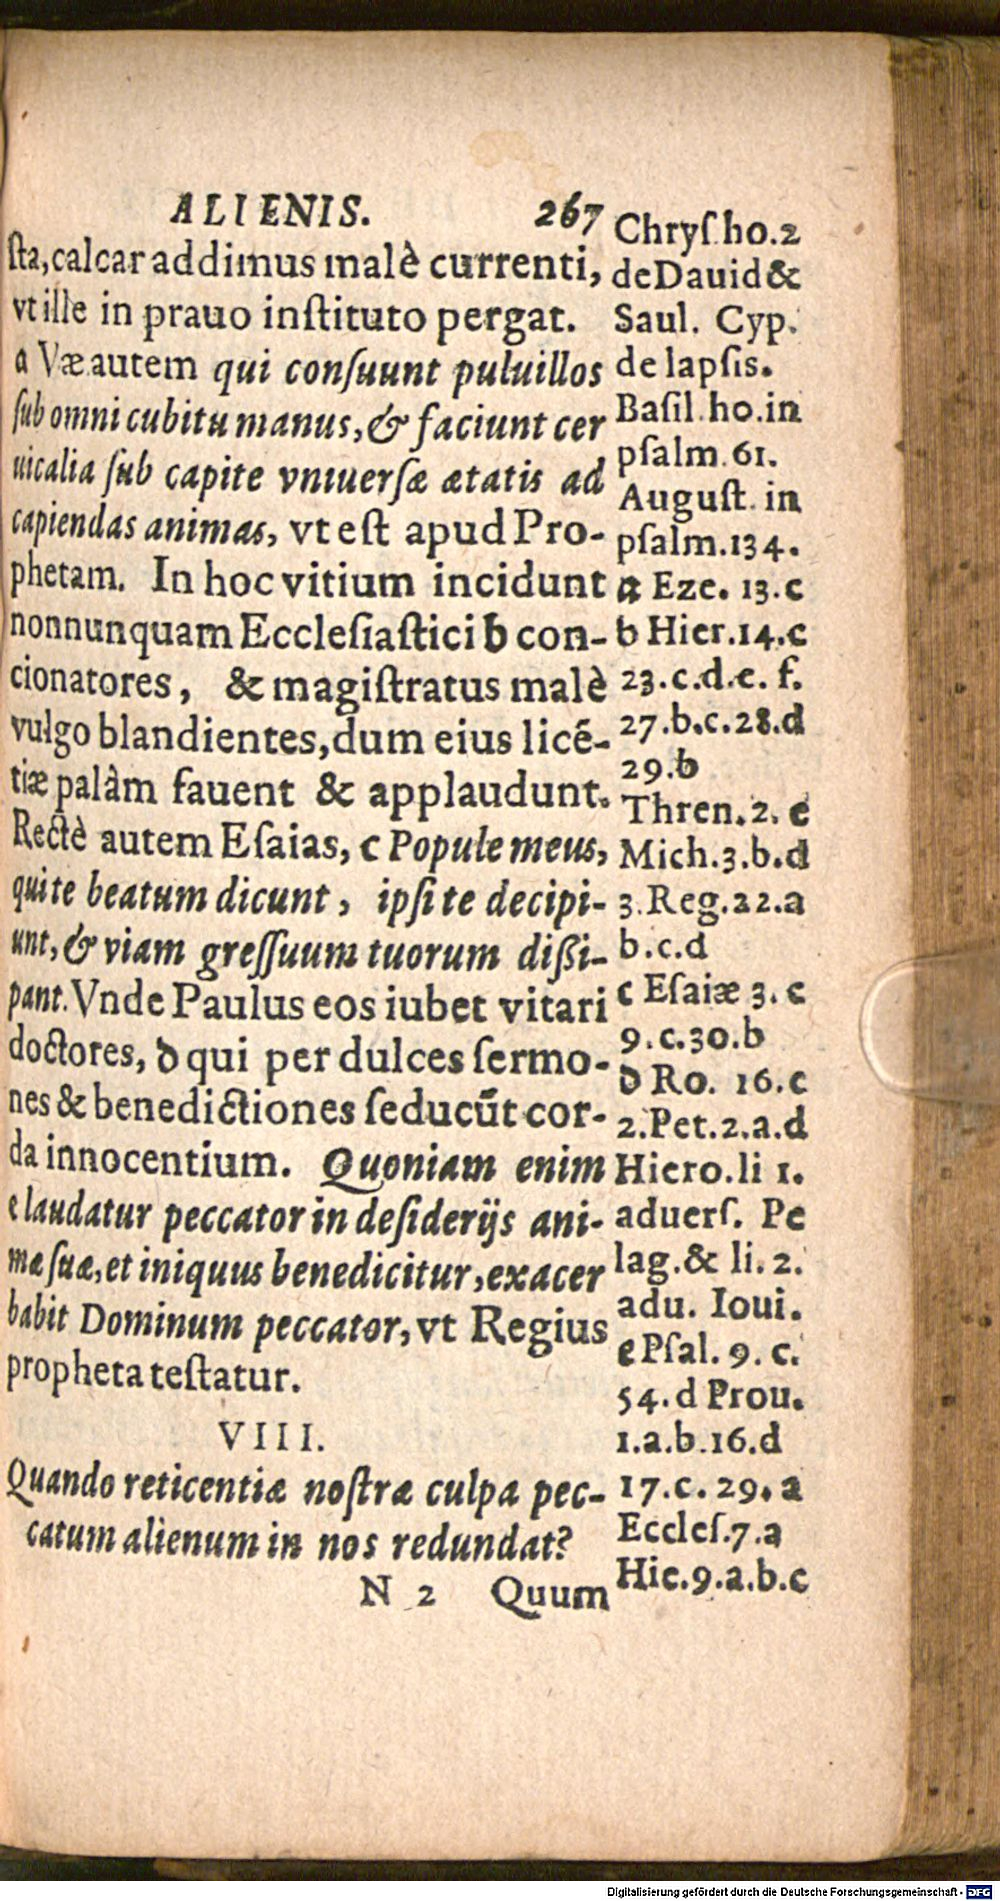 ALIENIS. 267
ſta, calcar addimus malè currenti,
vt ille in prauo inſtituto pergat.
a Væ autem qui conſuunt puluillos
ſub omni cubitu manus, & faciunt cer
uicalia ſub capite vniuerſæ ætatis ad
capiendas animas, vt eſt apud Pro-
phetam. In hoc vitium incidunt
nonnunquam Eccleſiaſtici b con-
cionatores, & magiſtratus malè
vulgo blandientes, dum eius licē-
tiæ palàm fauent & applaudunt.
Rectè autem Eſaias, c Popule meus,
qui te beatum dicunt, ipſi te decipi-
unt, & viam greſſuum tuorum diſsi-
pant. Vnde Paulus eos iubet vitari
doctores, d qui per dulces ſermo-
nes & benedictiones ſeducūt cor-
da innocentium. Quoniam enim
e laudatur peccator in deſiderijs ani-
mæ ſuæ, et iniquus benedicitur, exacer
babit Dominum peccator, vt Regius
propheta teſtatur.
VIII.
Quando reticentiæ noſtræ culpa pec-
catum alienum in nos redundat?
N 2 Quum
Chryſ. ho. 2
de Dauid &
Saul. Cyp.
de lapſis.
Baſil. ho. in
pſalm. 61.
Auguſt. in
pſalm. 134.
a Eze. 13. c
b Hier. 14. c
23. c. d. e. f.
27. b. c. 28. d
29. b
Thren. 2. e
Mich. 3. b. d
3. Reg. 22. a
b. c. d
c Eſaiæ 3. c
9. c. 30. b
d Ro. 16. c
2. Pet. 2. a. d
Hiero. li 1.
aduerſ. Pe
lag. & li. 2.
adu. Ioui.
e Pſal. 9. c.
54. d Prou.
1. a. b. 16. d
17. c. 29. a
Eccleſ. 7. a
Hie. 9. a. b. c
Digitalisierung gefördert durch die Deutsche Forschungsgemeinschaft - DFG